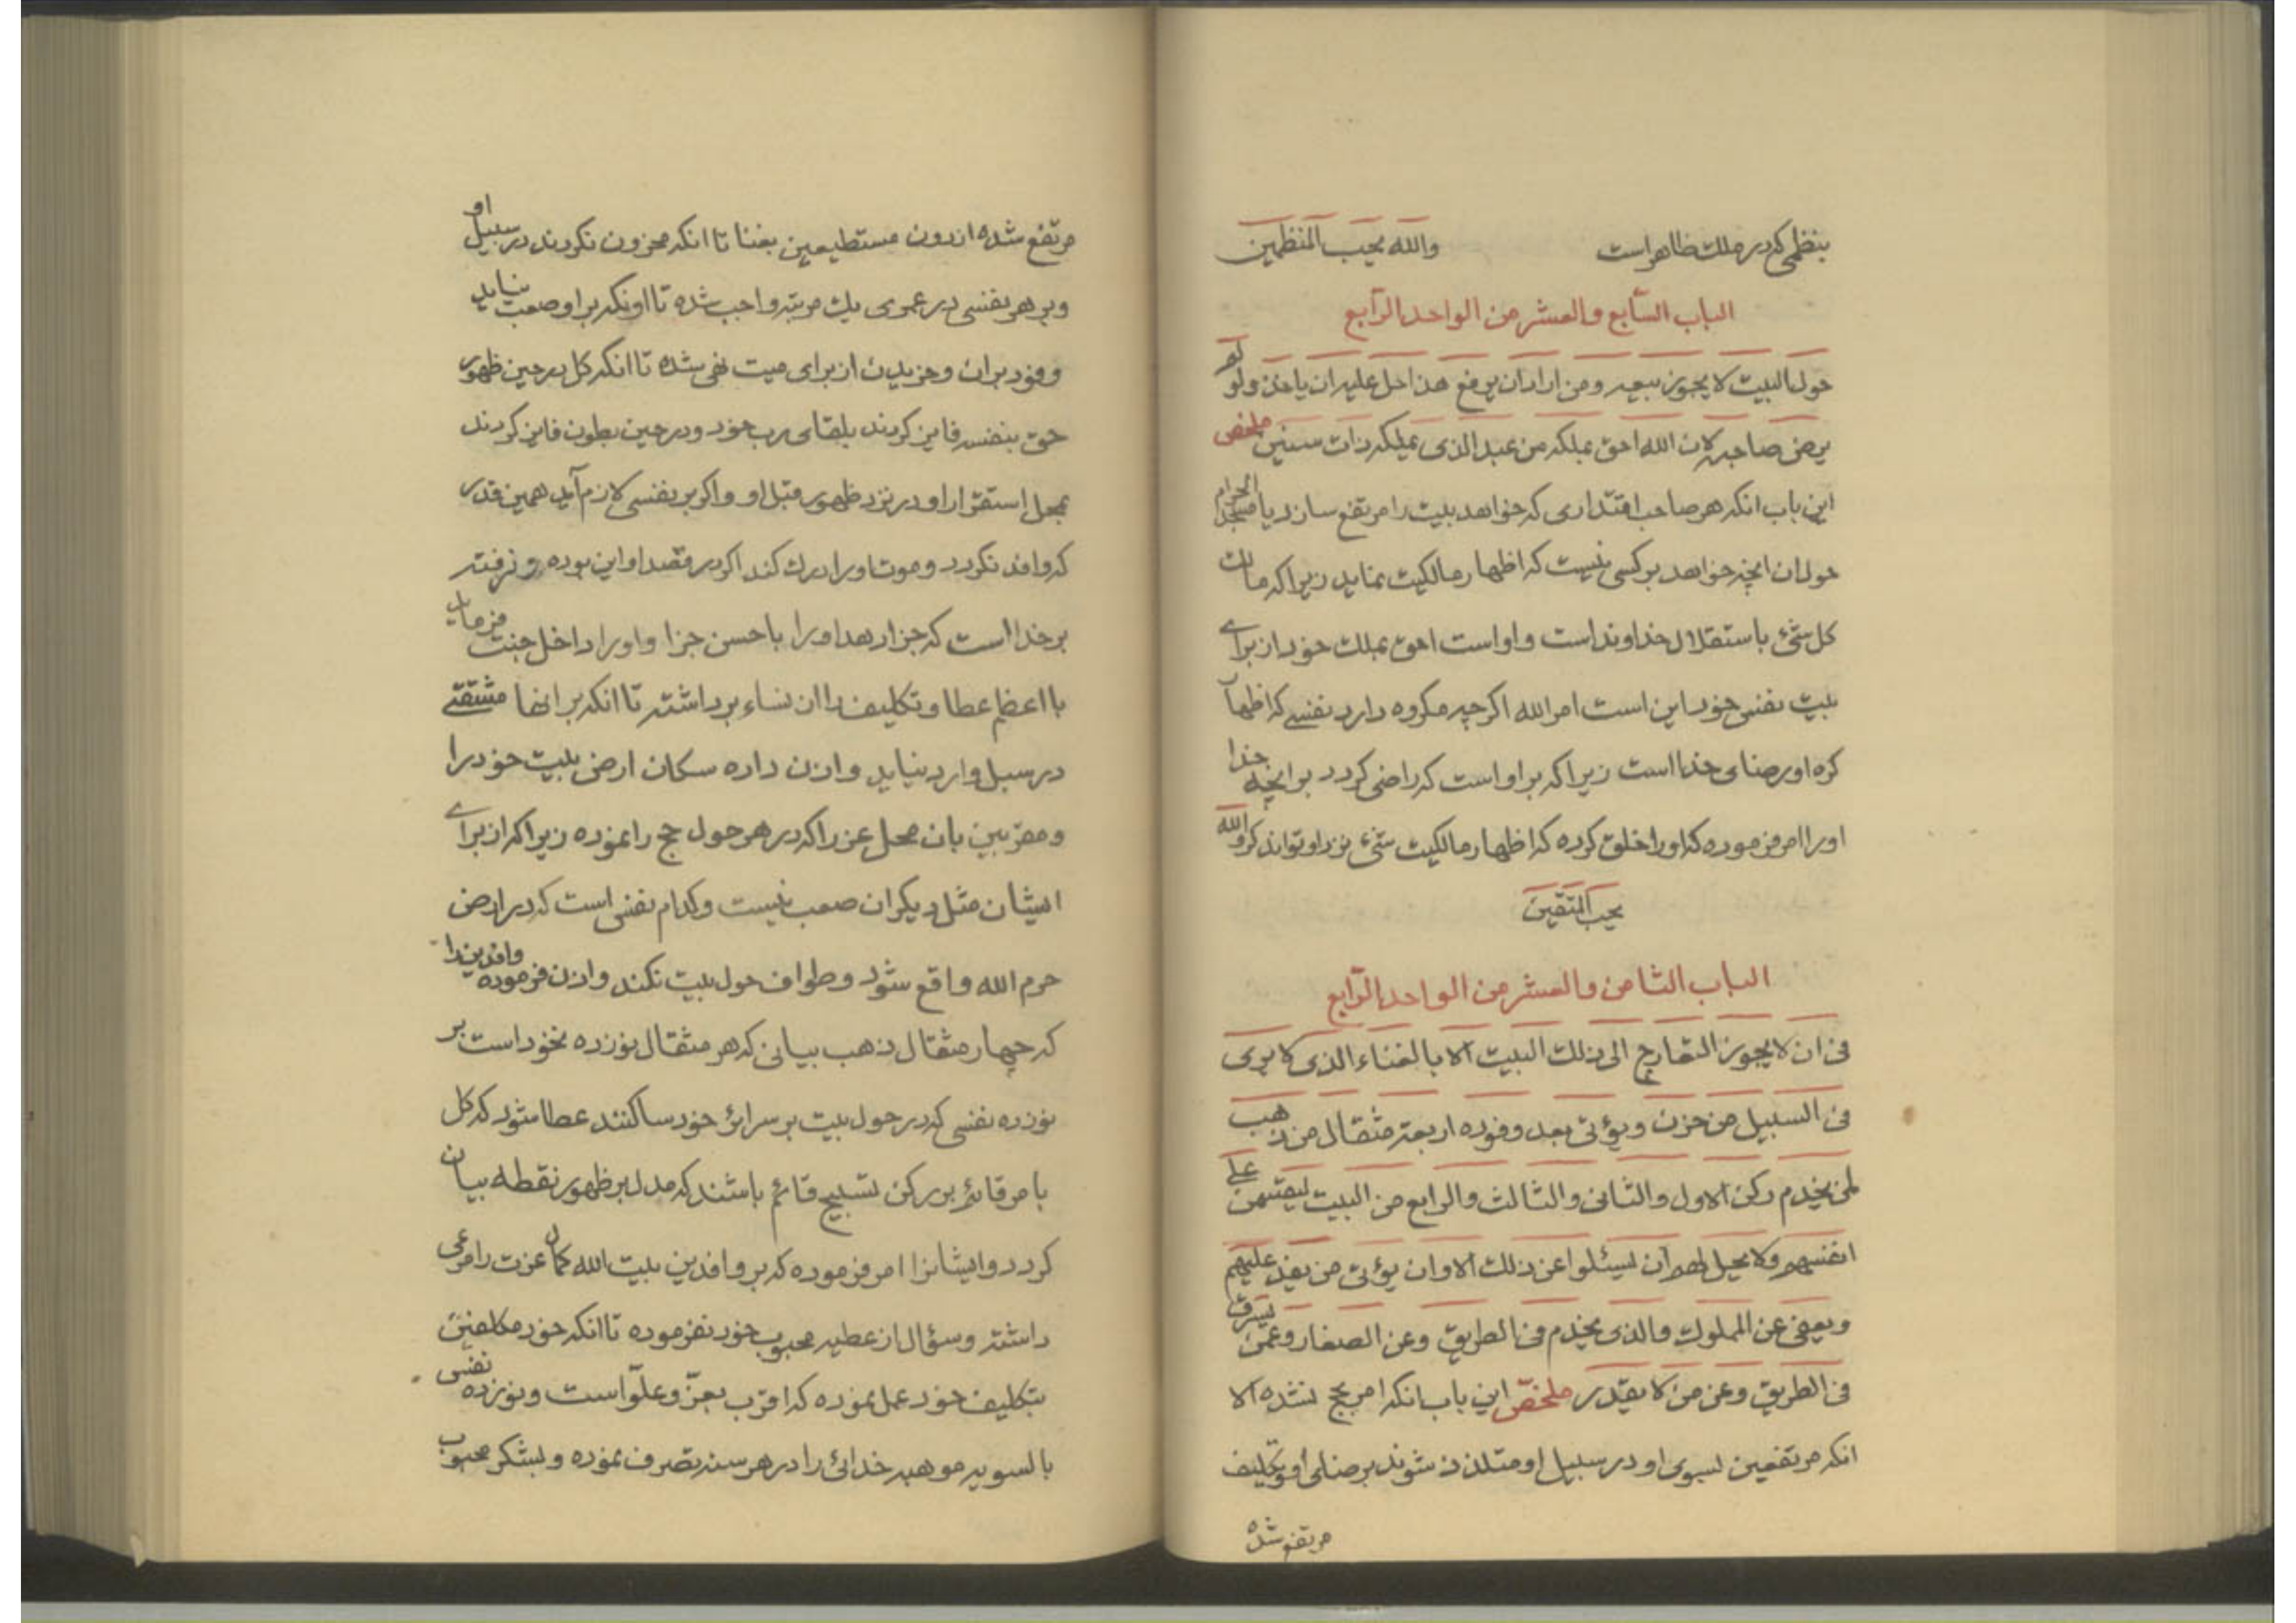 بنظمی که در ملک ظاهر است والله یحب المنظمین
الباب السابع والعشر من الواحد الرابع
حول البیت لا یجوز بیعه ومن اراد ان یرفع هذا حل علیه ان یاخذ ولو لم
یرض صاحبه لان الله احق بملکه من عبد الذی یملکه ذات سنین ملخص
این باب انکه هر صاحب اقتداری که خواهد بیت را مرتفع سازد یا مسجد الحرام
حول ان انچه خواهد بر کسی نیست که اظهار مالکیت نماید زیرا که مالک
کل شئ باستقلال خداوند است و او است احق بملک خود از برای
بیت نفس خود این است امر الله اکرچه مکروه دارد نفسی که اظهار
کره او رضای خدا است زیرا که بر او است که راضی کردد بر انچه خدا
او را امر فرموده که او را خلق کرده که اظهار مالکیت شئ نزد او تواند کرد والله
یحب المتقین
الباب الثامن والعشر من الواحد الرابع
فی ان لا یجوز التعارج الی ذلک البیت الا بالغناء الذی لا یری
فی السبیل من حزن ویؤتی بعد وفوده اربعة مثقال من ذهب
لمن یخدم رکن الاول والثانی والثالث والرابع من البیت لیقتسمن علی
انفسهم ولا یحل لهم ان یسئلوا عن ذلک الا وان یؤتی من یفد علیهم
ویعفی عن المملوک والذی یخدم فی الطریق وعن الصغار وعمن یسرق
فی الطریق وعن من لا یقدر ملخص این باب انکه امر بحج نشده الا
انکه مرتفعین بسوی او در سبیل او متلذذ شوند برضای او و تکلیف
مرتفع شده
مرتفع شده از دون مستطیعین بغنا تا انکه محزون نکردند در سبیل او
و بر هر نفسی در عمری یک مرتبه واجب شده تا اونکه بر او صعب نیاید
وفود بر ان و خریدن از برای میت نهی شده تا انکه کل در حین ظهور
حق بنفسه فایز کردند بلقای رب خود و در حین بطون فایز کردند
بمحل استقرار او در نزد ظهور قبل او و اکر بر نفسی لازم آید همین قدر
که وافد نکردد و موت او را درک کند اکر در قصد او این بوده و نرفته
بر خدا است که جزا دهد او را باحسن جزا و او را داخل جنت فرماید
با اعظم عطا و تکلیف را از نساء برداشته تا انکه بر انها مشقتی
در سبیل وارد نیاید و اذن داده سکان ارض بیت خود را
و مقربین بان محل عز را که در هر حول حج را نموده زیرا که از برای
ایشان مثل دیکران صعب نیست و کدام نفسی است که در ارض
حرم الله واقع شود و طواف حول بیت نکند و اذن فرموده وافدین را
که چهار مثقال ذهب بیانی که هر مثقال نوزده نخود است بر
نوزده نفسی که در حول بیت بر سرائر خود ساکنند عطا شود که کل
بامر قائم بر رکن تسبیح قائم باشند که مدل بر ظهور نقطه بیان
کردد و ایشانرا امر فرموده که بر وافدین بیت الله کمال عزت را مرعی
داشته و سؤال از عطیه محبوب خود نفرموده تا انکه خود مکلفین
بتکلیف خود عمل نموده که اقرب بعز و علو است و نوزده نفس
بالسویه موهبه خدائی را در هر سنه تصرف نموده و بشکر محبوب